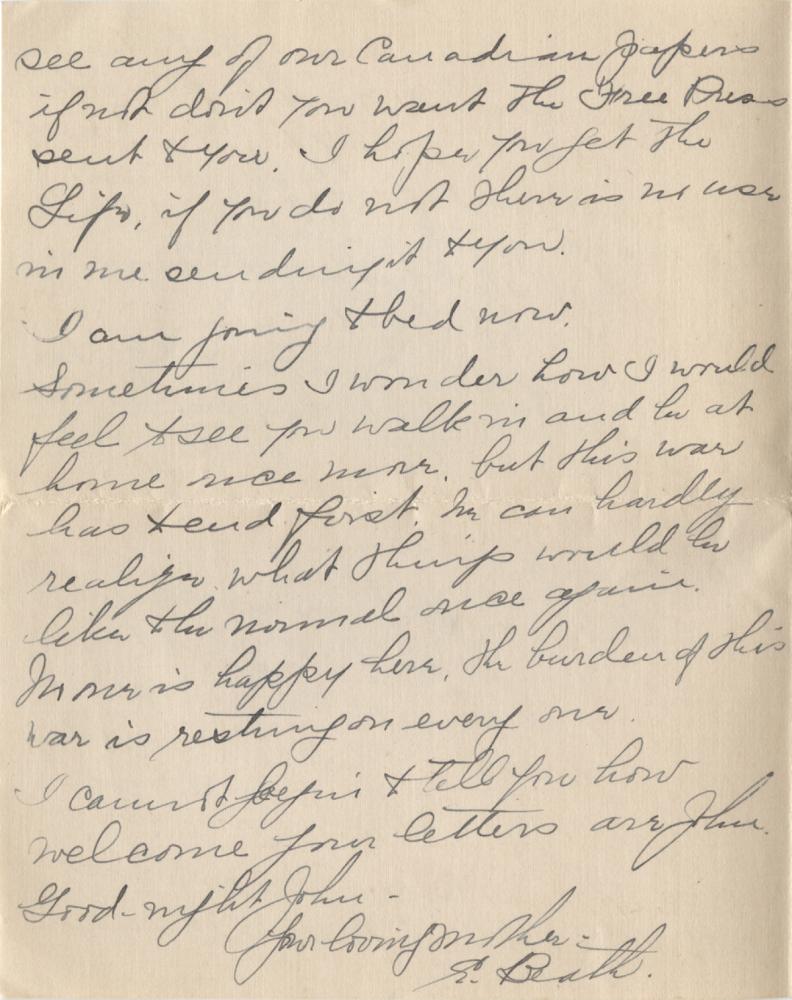 see any of our Canadian papers
if not don't you want the Free Press
sent to you. I hope you get the
Life, if you do not there is no use
in me sending it to you.
I am going to bed now.
Sometimes I wonder how I would
feel to see you walk in and be at
home once more, but this war
has to end first. We can hardly
realize what things would be
like the normal once again.
No one is happy here, the burden of this
war is resting on every one.
I cannot begin to tell you how
welcome your letters are John.
Good-night John -
Your loving mother -
E. Beath.